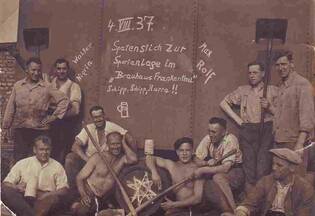 4. VIII. 37.
Spatenstich zur
Sportanlage im
"Brauhaus Frankenthal"
Schipp, Schipp, Hurra!!
Walter
Klein
Max
Rolf